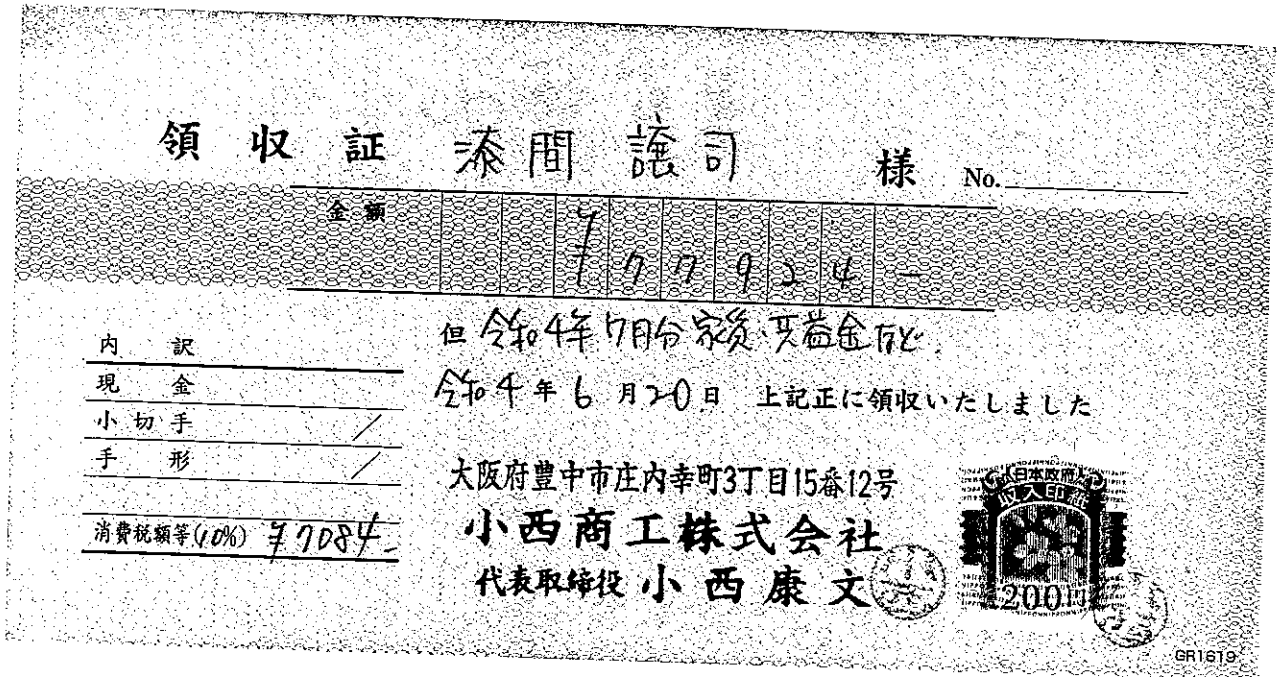 領収証 漆間 譲司 様 No.
金額 ¥77924-
但 令和4年7月分家賃・共益金など
令和4年6月20日 上記正に領収いたしました
内訳
現金
小切手 /
手形 /
消費税額等(10%) ¥7084-
大阪府豊中市庄内幸町3丁目15番12号
小西商工株式会社
代表取締役 小西康文
日本政府
収入印紙
200円
GR1619